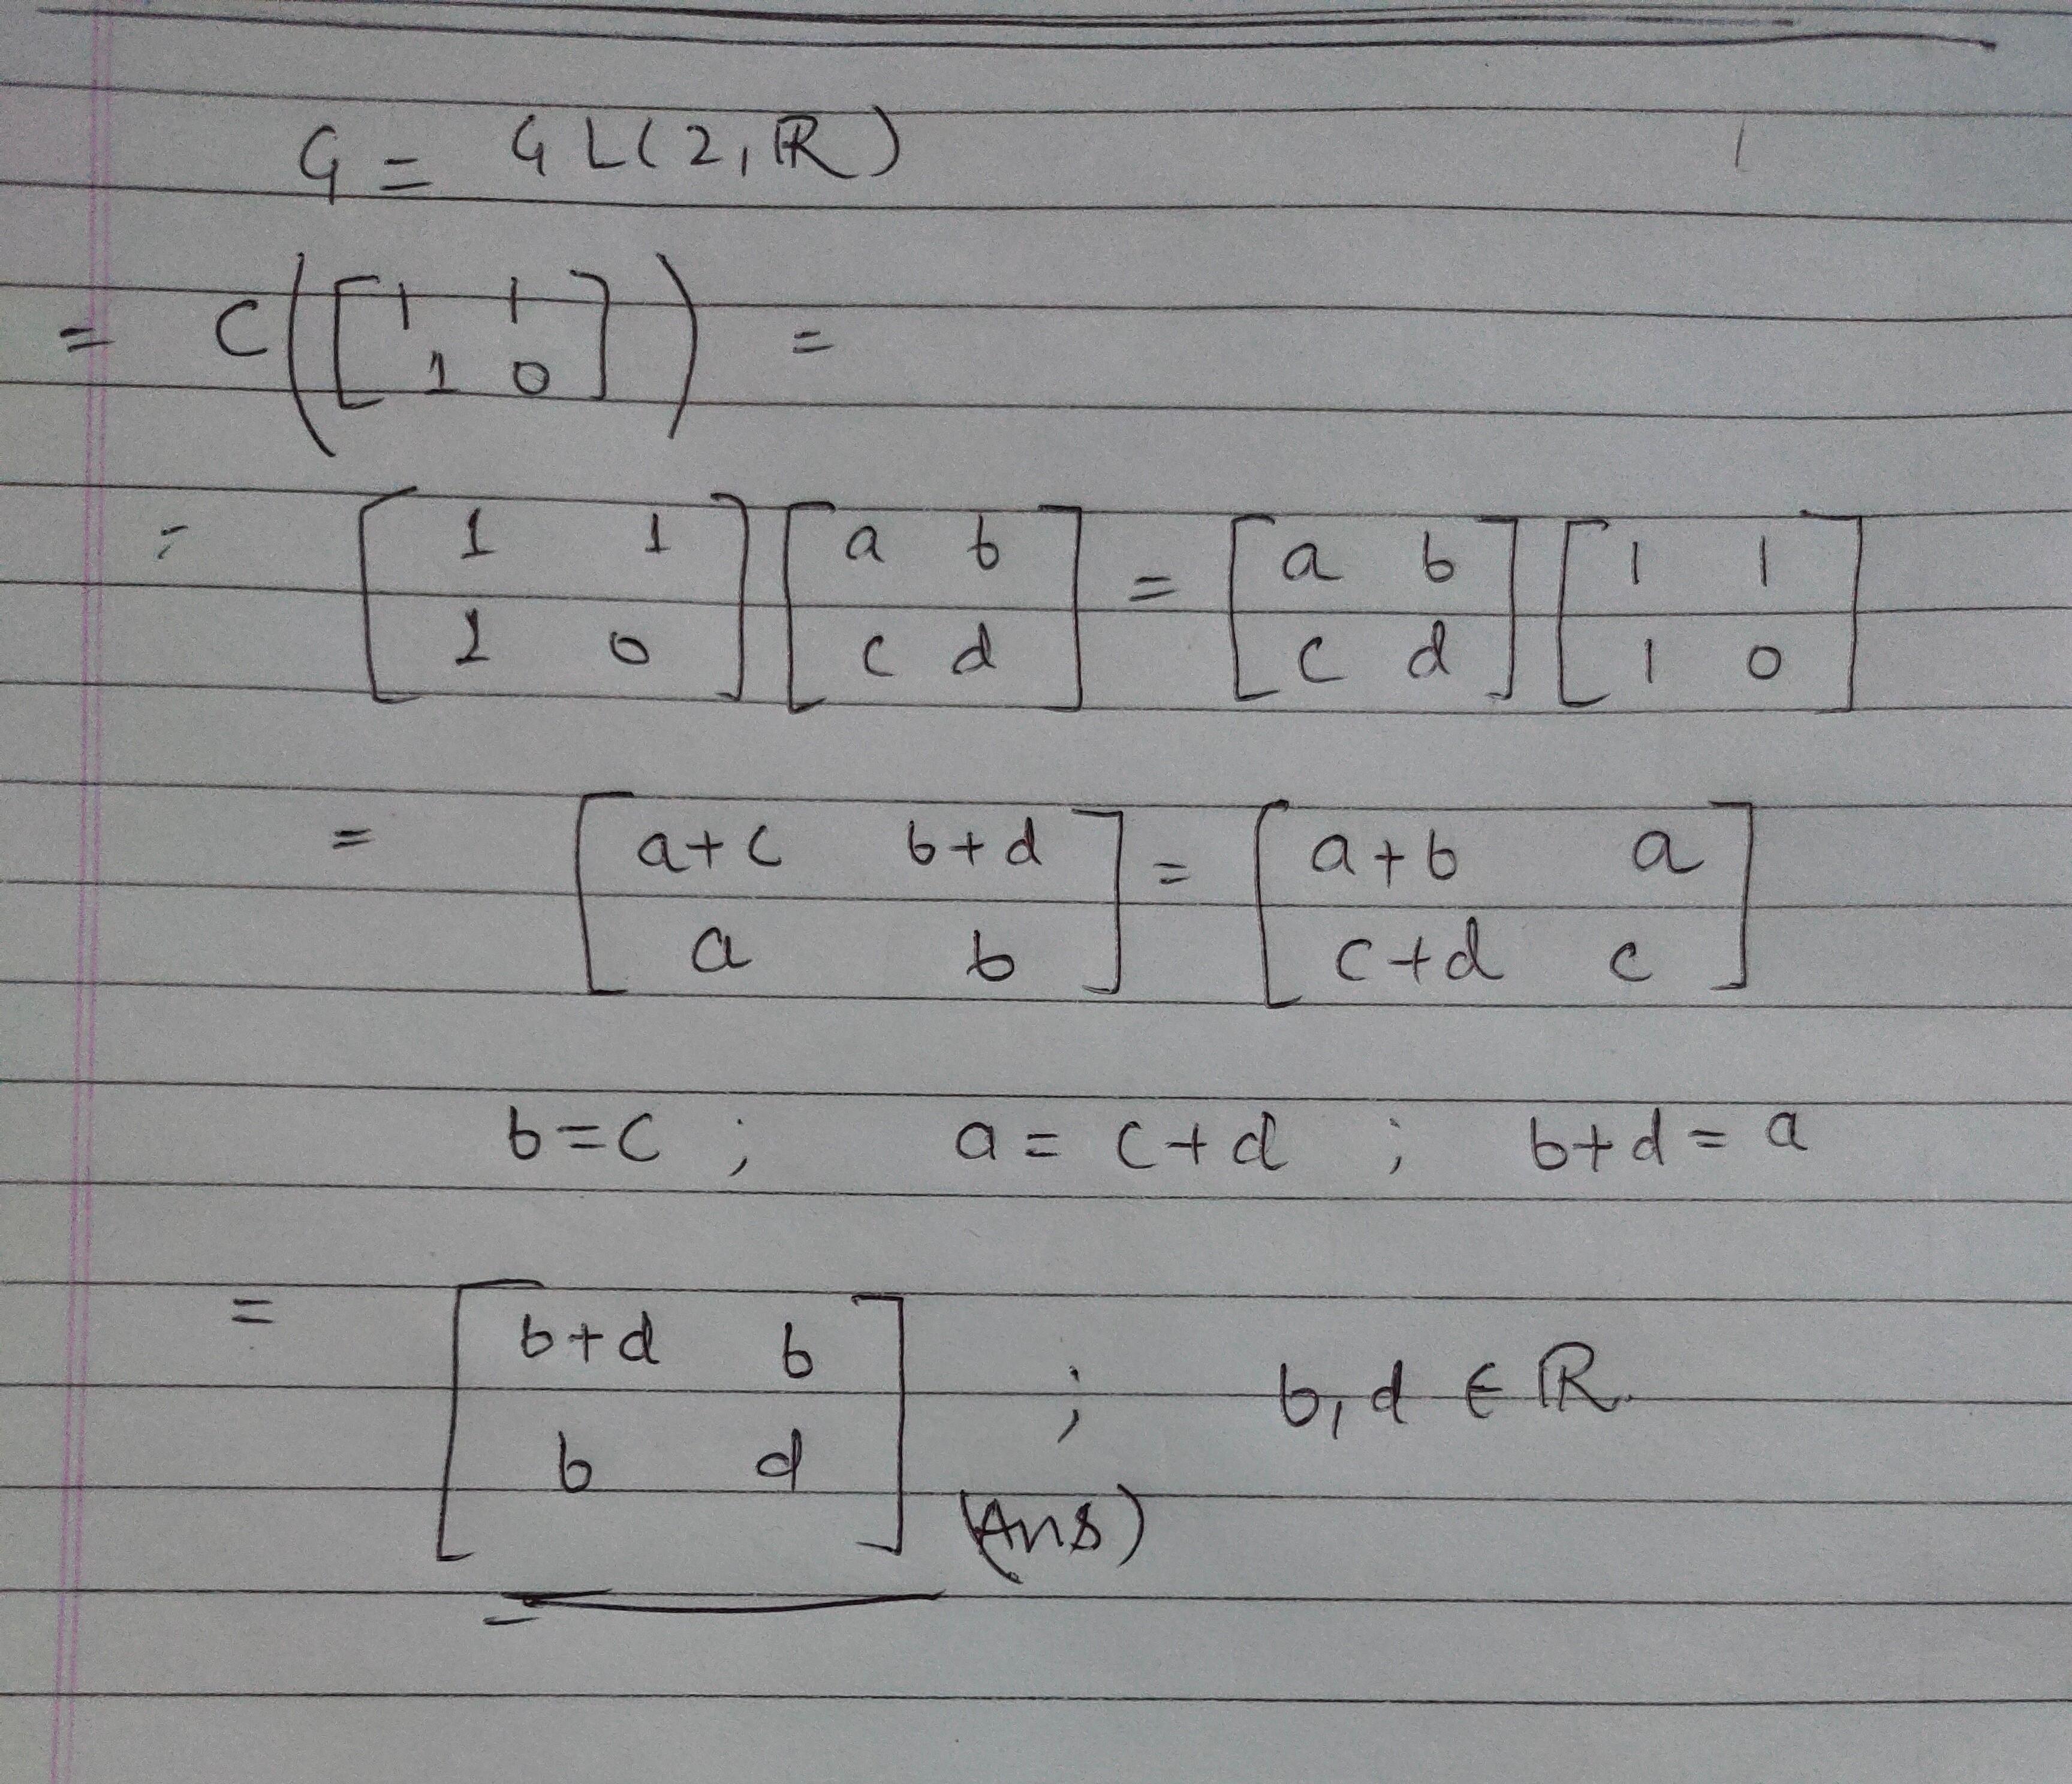 G = GL(2, ℝ)
= C([1 1; 1 0]) =
= [1 1; 1 0] [a b; c d] = [a b; c d] [1 1; 1 0]
= [a+c b+d; a b] = [a+b a; c+d c]
b=c ; a = c+d ; b+d = a
= [b+d b; b d] ; b, d ∈ ℝ.
(Ans)